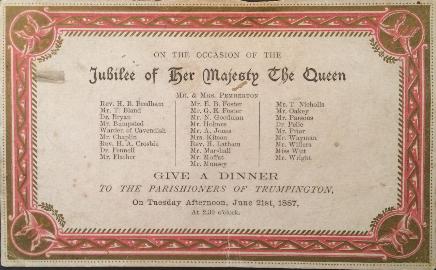 ON THE OCCASION OF THE
Jubilee of Her Majesty The Queen
MR. & MRS. PEMBERTON
Rev. H. R. Mr. E. B. Foster Mr. T. Nicholls
Mr. T. Bland Mr. G. E. Foster Mr. Oakey
Dr. Bryan Mr. N. Goodman Mr. Parsons
Mr. Bumpsted Mr. Holmes Dr. Peile
Warden of Cavendish Mr. A. Jones Mr. Prior
Mr. Chaplin Mrs. Kitson Mr. Wayman
Rev. H. A. Crosbie Rev. H. Latham Mr. Willers
Dr. Fennell Mr. Marshall Miss Witt
Mr. Fischer Mr. Moffat Mr. Wright
Mr. Munsey
GIVE A DINNER
TO THE PARISHIONERS OF TRUMPINGTON,
On Tuesday Afternoon, June 21st, 1887,
At 2.30 o'clock.